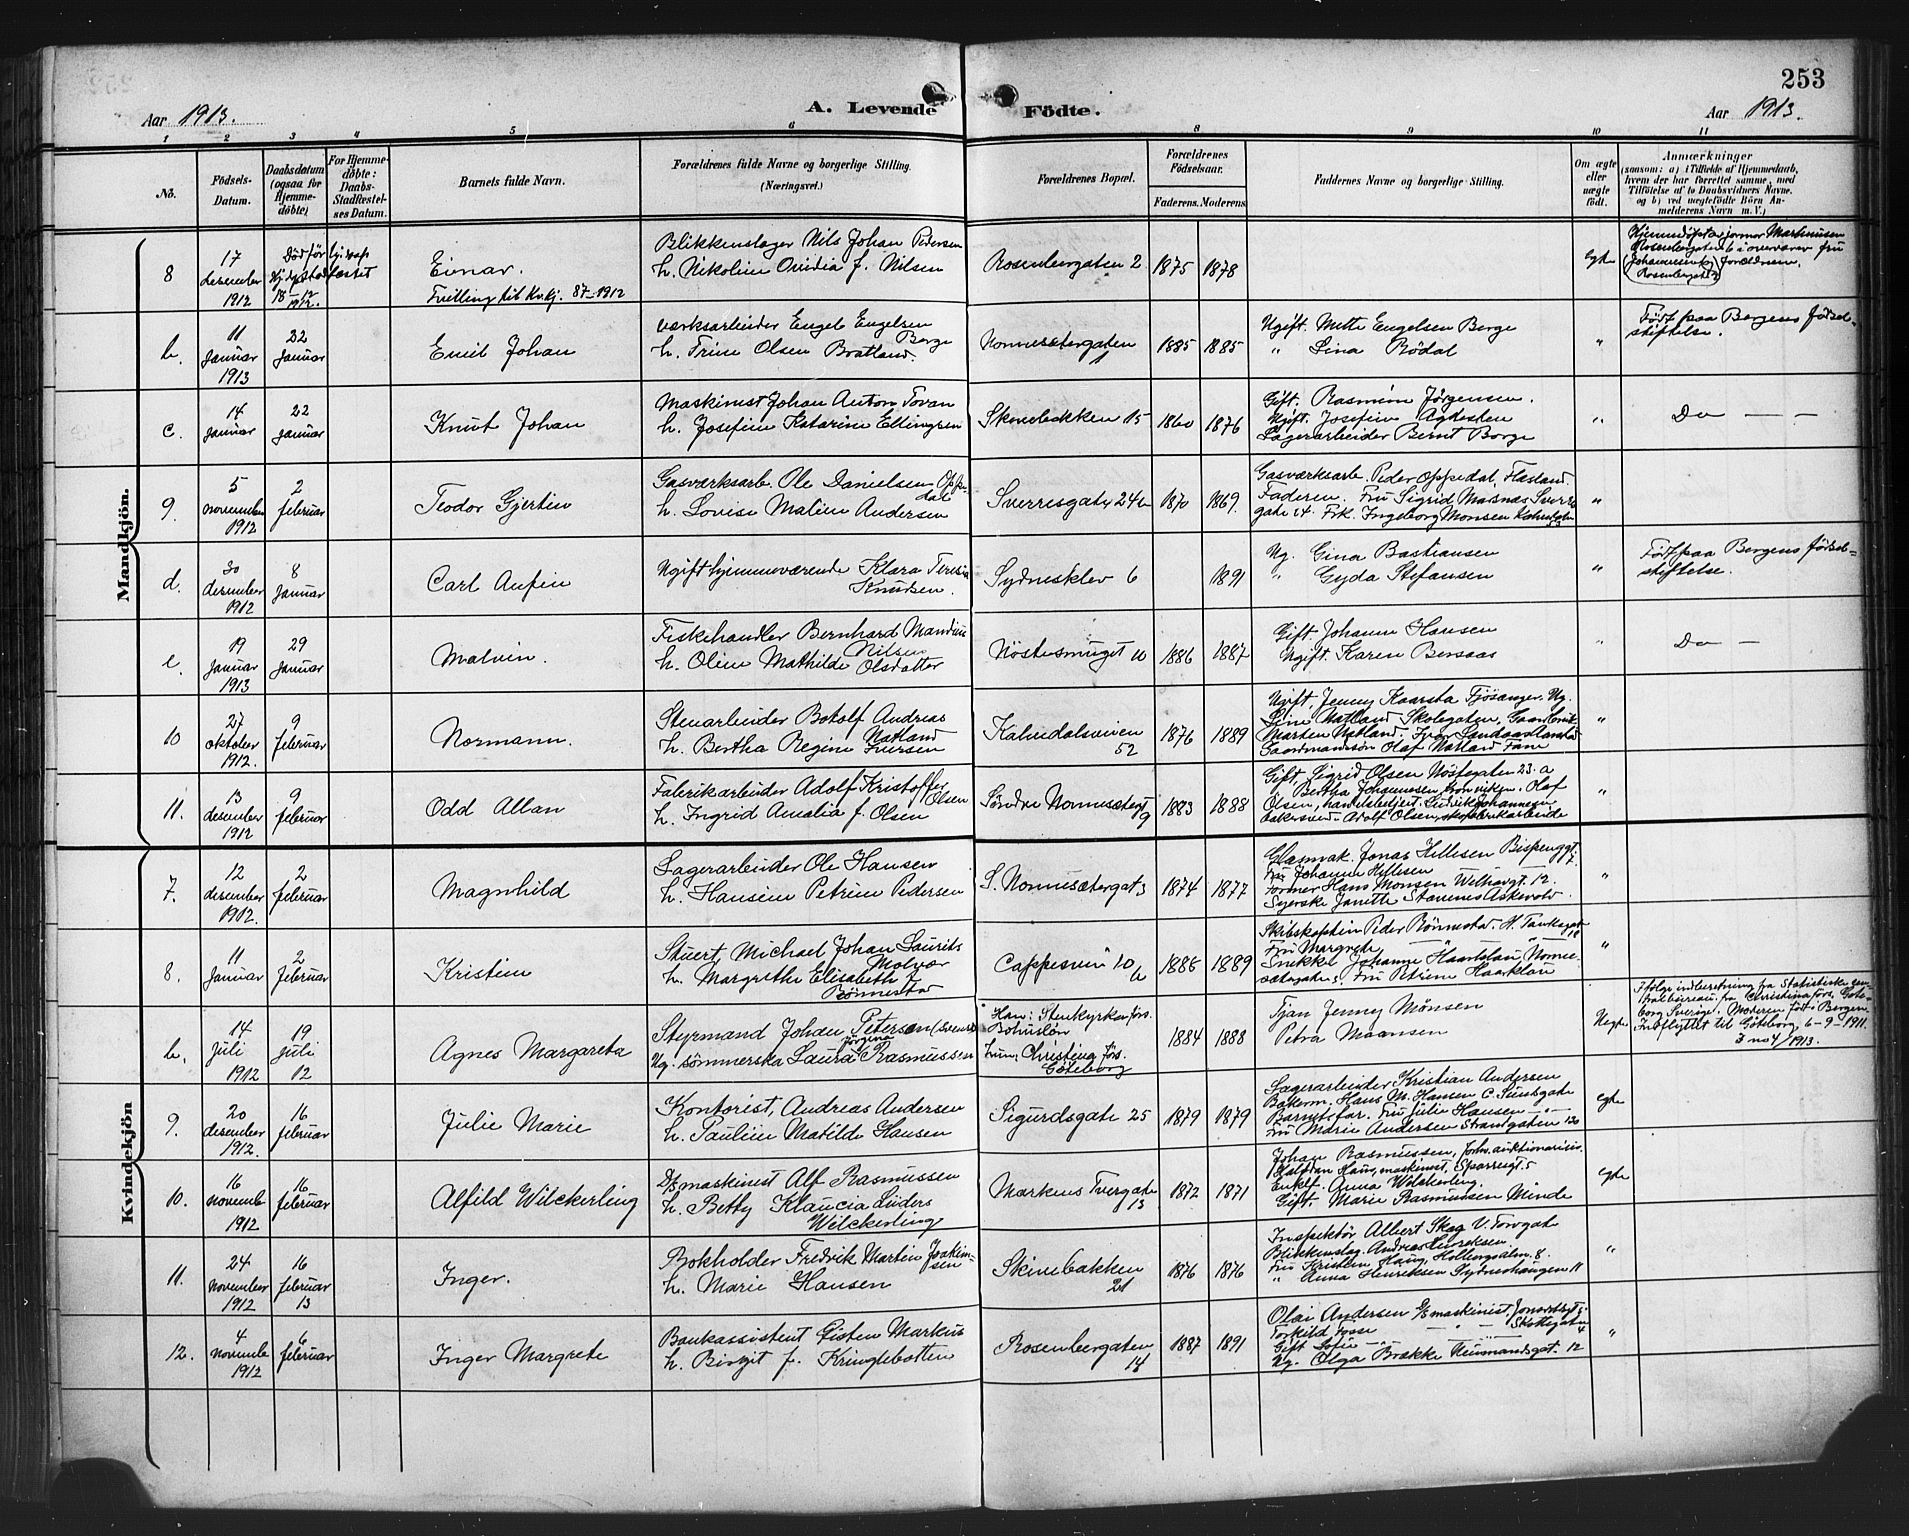 253
Aar 1913.
A. Levende Födte.
Aar 1913.
1 2 3 4 5 6 8 9 10 11
No.
Födsels-
Datum.
Daabsdatum
(ogsaa for
Hjemme-
döbte)
For Hjemme-
döbte:
Daabs-
Stadfæstel-
ses Datum.
Barnets fulde Navn.
Forældrenes fulde Navne og borgerlige Stilling.
(Næringsvei.)
Forældrenes Bopæl.
Forældrenes
Födselsaar.
Faderens. Moderens.
Faddernes Navne og borgerlige Stilling.
Om ægte
eller
uægte
födt.
Anmærkninger
(saasom: a) i Tilfælde af Hjemmedaab,
hvem der har forrettet samme, med
Tilföielse af to Daabsvidners Navne.
og b) ved uægtefödte Börn An-
melderens Navn m. V.)
Mandkjön.
8
17
desember
1912
Död för
18-12
1912.
Einar.
Tvilling til Kv.kj. 87-1912
Blikkenslager Nils Johan Pedersen
h. Nikoline Ovidia f. Nilsen
Rosenbergaten 2
1875 1878
egte
Hjemmedöpt av jormor Martinusen
Rosenbergaten 6 i overvær av fru
Johannesen og forældrene.
Rosenbergat 2
b.
11
Januar
1913
22
Januar
Emil Johan
Værksarbeider Engel Engelsen
Berge
h. Trine Olsen Bratland.
Nonnesætergaten
1
1885 1885
Ugift. Mette Engelsen Berge
" Lina Rödal
"
Födt paa Bergens födsel-
stiftelse.
c.
14
Januar
22
Januar
Knut Johan
Maskinist Johan Anton Tovan
h. Josefine Katarine Ellingsen
Skivebakken 15
1860 1876
Gift. Rasmine Jørgensen.
Ugift. Josefine Agdesten
Lagerarbeider Bernt Borge
"
Do — —
9.
5
november
1912
2
februar
Teodor Gjertin
Gasværksarb. Ole Danielsen Oppe-
dal
h. Lovise Maline Andersen
Sverresgate 24b
1870 1869.
Gasværksarb. Peder Oppedal, Fløsland.
Faderen. Fru Sigrid Masnæs Sverres
gate 14. Frk. Ingeborg Monsen
"
d.
30
desember
1912
8
Januar
Carl Anfin
Ugift hjemmeværende Klara Teresia
Knudsen.
Sydnesklev 6
1891
Ug. Gina Bastiansen
" Gyda Stefansen
"
Födt paa Bergens födsel-
stiftelse.
e.
19
Januar
1913
29
Januar
Malvin.
Fiskehandler Bernhard Mandius
Nilsen
h. Oline Mathilde Olsdatter
Nöstesmuget 10
1886 1887
Gift. Johanne Hansen
Ugift. Karen Bersaas
"
Do —
10
27
oktober
1912.
9
februar
Normann.
Stenarbeider Botolf Andreas
Natland
h. Bertha Regine Iversen
Kalvedalsveien
52
1876 1889
Ugift, Jenny Kaarsta Fjösanger. Ug.
Line Natland Skolegaten.
Marten Natland.
Gaardmandssön Olaf Natland Fane
"
11.
13
desember
1912
9
februar
Odd Allan
Fabrikarbeider Adolf Kristoffer
Olsen
h. Ingrid Amalia f. Olsen
Söndre Nonnesætergt
9
1883 1888
Gift, Sigrid Olsen Nöstegaten 23.a
Bertha Johannesen, Olaf
Olsen, handelsbetjent.
bakersvend. Adolf Olsen, skofabrikarbeide
"
Kvindekjön
7.
12
desember
1912.
2
februar
Magnhild
Lagerarbeider Ole Hansen
h. Hansine Petrine Pedersen
S. Nonnesætergat 3
1874 1877
Glasmak. Jonas Hillesen Bispenggt.
7.
Fru Johanne Hillesen
Former Hans Monsen Welhavgt. 12.
Syerske Janette Stavenes Askevold.
"
8.
11
Januar
2
februar
Kristine
Stuert, Michael Johan Laurits
Molvær
h. Margrethe Elisabeth f.
Rönnestad
Cappesvei 10
b
1888 1889
Skibskaptein Peder Rönnestad. H. Tanksgat
18
Fru Margrete — " —
Snekker Johannes Haarklau Nonne-
sætergate 5. Fru Petrine Haarklau
"
b.
14
Juli
1912
19
Juli
12
Agnes Margareta
Styrmand Johan Peterson (svensk)
Jörgine
Ug. sömmerska Laura Rasmussen
Han: Stenkyrka förs.
Bohuslän
hun: Christina förs.
Göteborg
1884 1888
Tjan Jenny Mönsen
Petra Maansen
Uegte
Ifölge indberetning fra Statistiske cen-
tralbureau. fra Christina förs. Göte-
borg Sverige. Moderen födt i Bergen
Indflyttet til Göteborg 6-9-1911.
3 no 4/1913.
9.
20
desember
1912.
16
februar
Julie Marie
Kontorist, Andreas Andersen
h. Pauline Matilde Hansen
Sigurdsgate 25
1879 1879
Lagerarbeider Kristian Andersen
Bakerm. Hans M. Hansen C. Sundsgate
Barnets far. Fru Julie Hansen — " —
Fru Marie Andersen Strandgaten 120
egte
10.
16
novembe
1912
16
februar
Alfild Wilckerling
D/s maskinist Alf Rasmussen
h. Betty Klaucia Lüders
Wilckerling
Markus Tvergate
13
1872 1871
Johan Rasmussen, forhv. auktionarius.
Halfdan Haus, maskinist, Sparregt. 5
Enkef. Anna Wilckerling.
Gift. Marie Rasmussen Minde
egte
11.
24
november
1912
16
februar
13
Inger.
Bokholder Fredrik Martin Joakim-
sen
h. Marie Hansen
Skivebakken
21
1876 1876
Inspektör Albert Skag V. Torvgate
Blikkenslag. Andreas Henriksen.
Fru Kristen Haug Holbergsalm. 8.
" Anna Henriksen Sydneshaugen 11
"
12.
4
novembe
1912
6
februar
Inger Margrete
Bankassistent Eisten Markus
h. Birgit f. Kringlebotten
Rosenbergaten
14
1887 1891
Olai Andersen D/s maskinist,
Torkild Fosse — " — Skottegaten
4
Gift Sofie — " —
Ug. Olga Brække Neumandsgat. 12
"